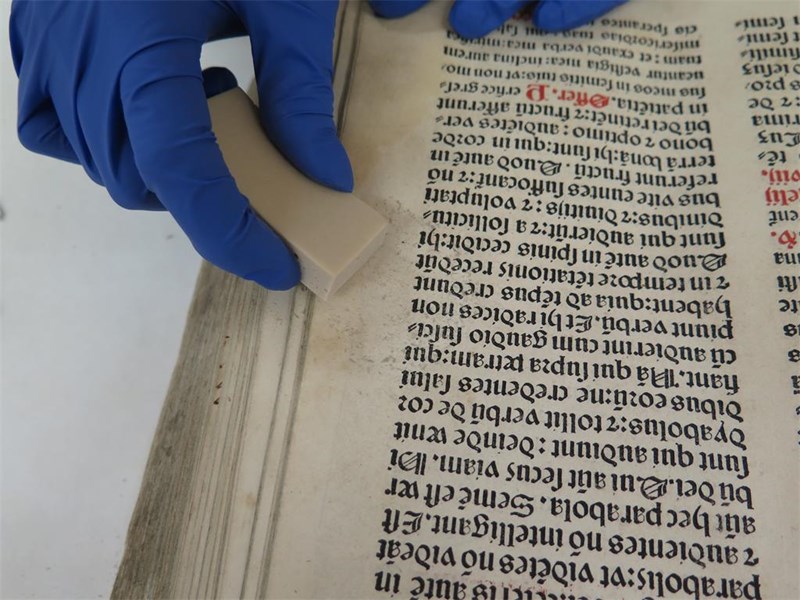 ceteris autē in
parabolis: vt vidētes nō videāt
⁊ audientes nō intelligant. Est
aūt hec parabola. Semē est ver
bū dei. Qui aūt secus viam. hi
sunt qui audiunt: deinde venit
dyabolus: ⁊ tollit verbū de cor
dibus eorū: ne credentes salui
fiant. Nā qui supra petram: qui:
cū audierint cum gaudio susci⸗
piunt verbū. Et hi radices non
habent: quia ad tēpus credunt
⁊ in tempore tētationis recedūt
Quod autē in spinis cecidit: hi
sunt qui audierūt: ⁊ a sollicitu⸗
dinibus: ⁊ diuitijs: ⁊ voluptati
bus vite euntes suffocant: ⁊ nō
referunt fructū. Quod autē in
terrā bonā: hi sunt: qui in corde
bono ⁊ optimo: audiētes ver⸗
bū dei retinēt: ⁊ fructū afferunt
in patiētia. Offer. Perfice gres⸗
sus meos in semitis tuis: vt non mo
ueantur vestigia mea: inclina aurem
tuam: et exaudi verba mea: mirifica
misericordias tuas qui
sperantes